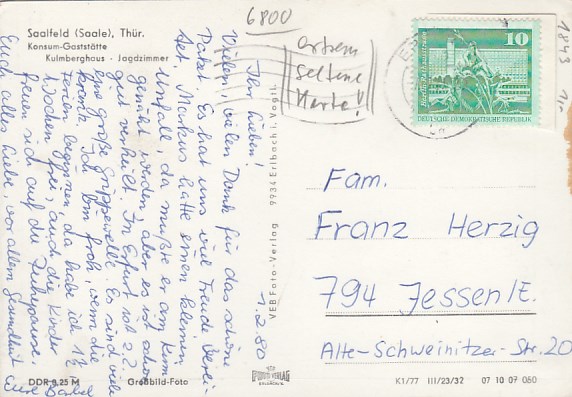 6800
Saalfeld (Saale), Thür.
Konsum-Gaststätte
Kulmberghaus - Jagdzimmer
extrem
seltene
Karte!
1843
10
Berlin, Rathausstraße
DEUTSCHE DEMOKRATISCHE REPUBLIK
1.2.80
Ihr Lieben!
Vielen, vielen Dank für das schöne
Paket. Es hat uns viel Freude berei-
tet. Markus hatte einen kleinen
Unfall, da mußte er am Kinn
genäht werden, aber es ist schon
gut verheilt. In Erfurt ist z.Z.
eine große Grippewelle. Es sind viele
krank. Ich bin froh, wenn die
Ferien beginnen, da habe ich 1½
Wochen frei, auch die Kinder
freuen sich auf die Ferienpause.
Euch alles Liebe, vor allem Gesundheit
Eure Bärbel
VEB Foto-Verlag 9934 Erlbach i. Vogtl.
Fam.
Franz Herzig
794 Jessen/E.
Alte-Schweinitzer-Str. 20
DDR 0,25 M
Großbild-Foto
K1/77 III/23/32 07 10 07 060